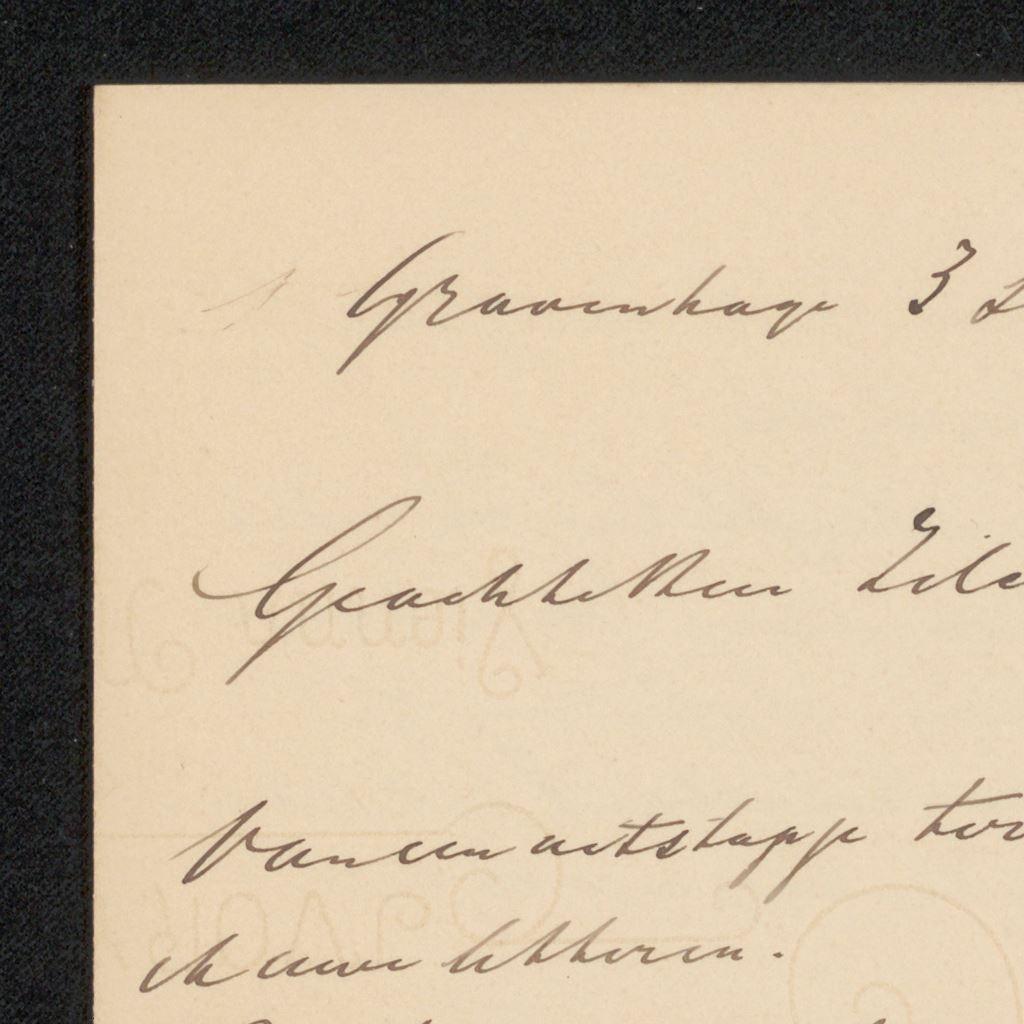 's Gravenhage 3
Geachte Heer Zilc
Van een uitstapje ter
ik uwe letteren.